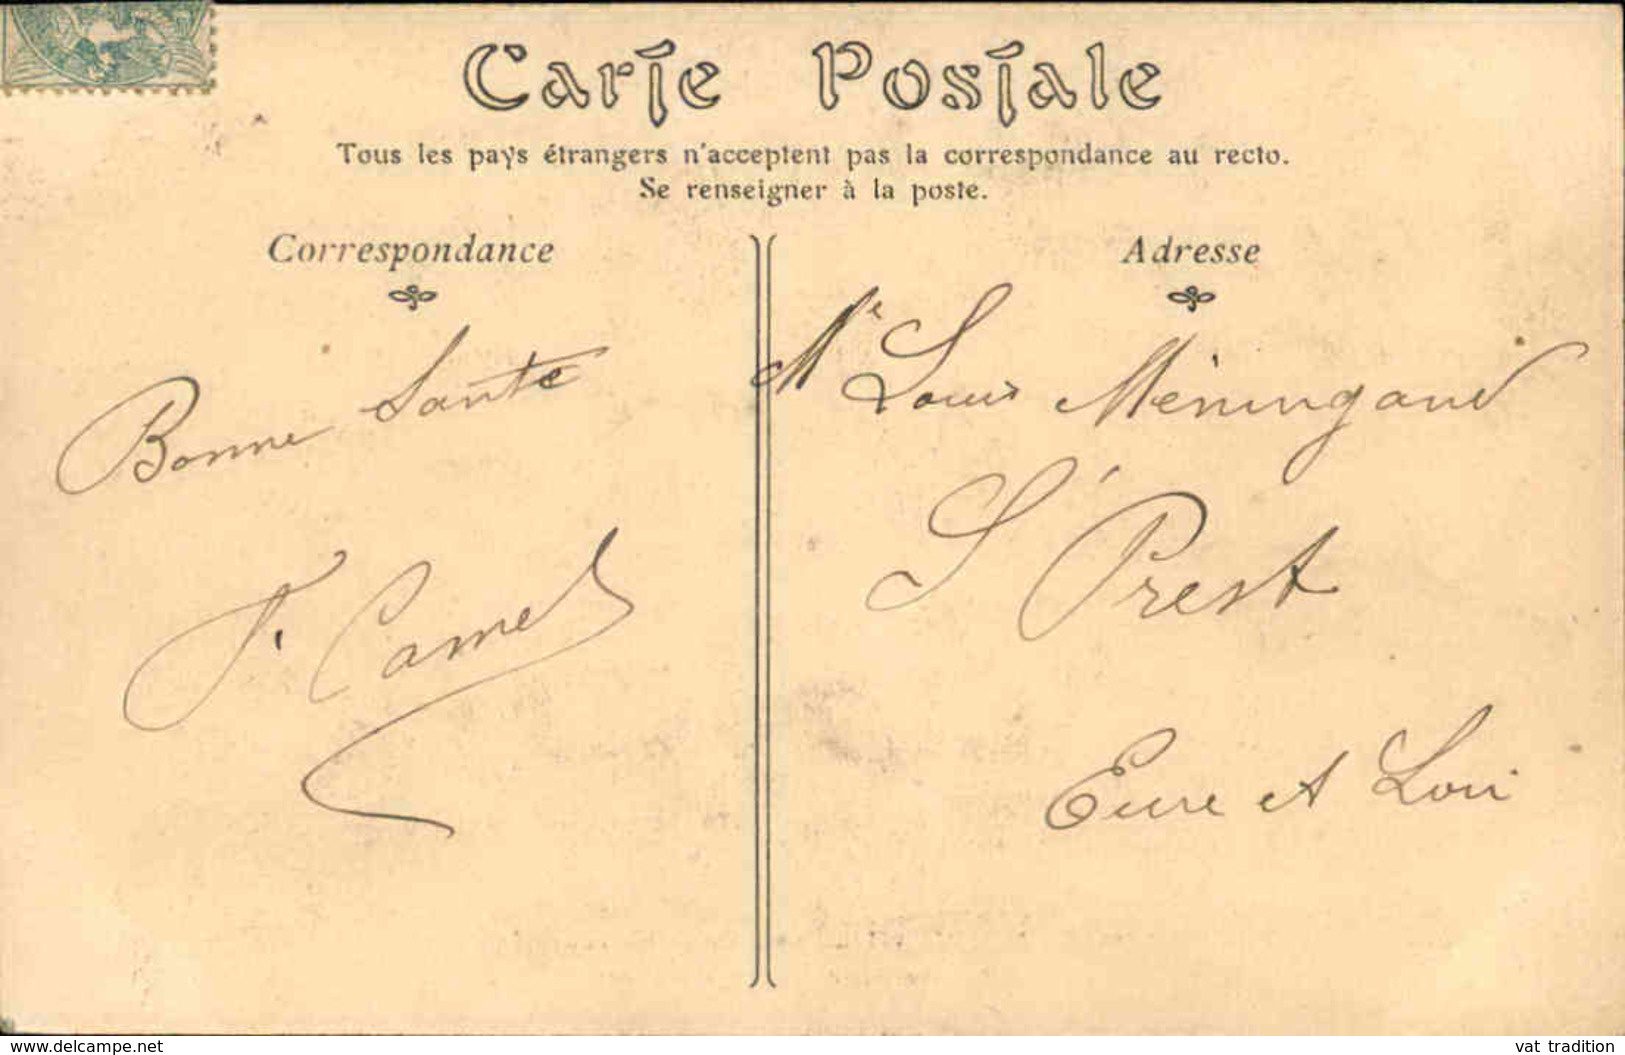 Carte Postale
Tous les pays étrangers n'acceptent pas la correspondance au recto.
Se renseigner à la poste.
Correspondance
Bonne Santé
F. Camel
Adresse
Me Louis Méningand
St Prest
Eure et Loir
www.delcampe.net
vat tradition